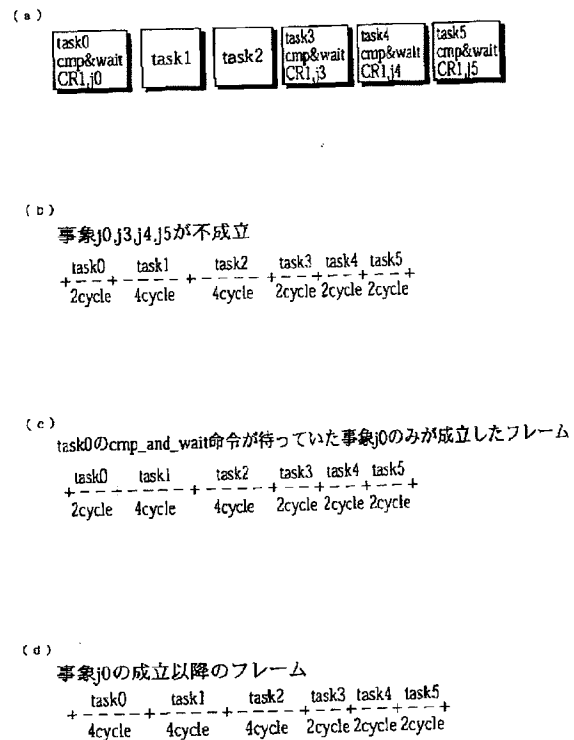 (a)
task0
cmp&wait
CR1,j0
task1
task2
task3
cmp&wait
CR1,j3
task4
cmp&wait
CR1,j4
task5
cmp&wait
CR1,j5
(b)
事象j0,j3,j4,j5が不成立
task0 task1 task2 task3 task4 task5
2cycle 4cycle 4cycle 2cycle 2cycle 2cycle
(c)
task0のcmp_and_wait命令が待っていた事象j0のみが成立したフレーム
task0 task1 task2 task3 task4 task5
2cycle 4cycle 4cycle 2cycle 2cycle 2cycle
(d)
事象j0の成立以降のフレーム
task0 task1 task2 task3 task4 task5
4cycle 4cycle 4cycle 2cycle 2cycle 2cycle